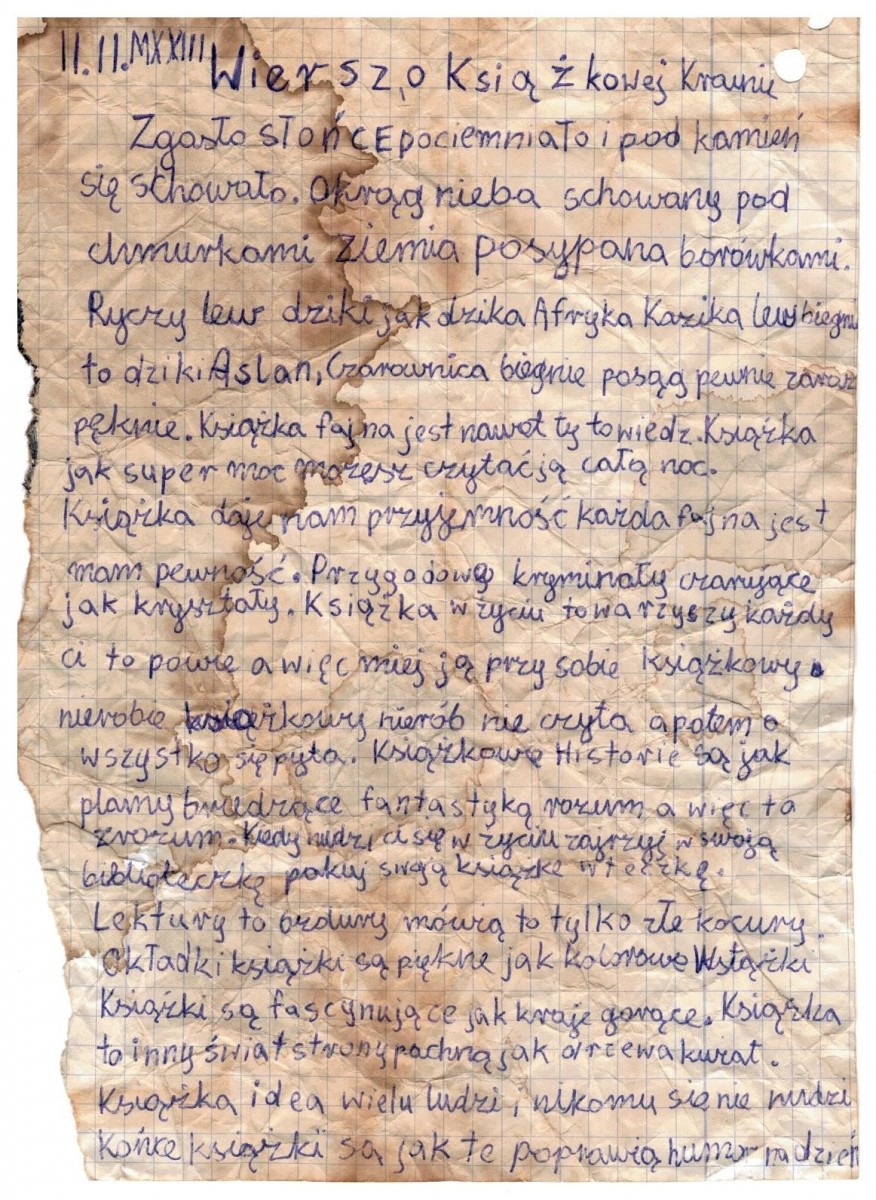 II.II.MXXIII Wiersz o Książkowej Krainie
Zgasło słońce pociemniało i pod kamień
się schowało. Okrąg nieba schowany pod
chmurkami ziemia posypana borówkami.
Ryczy lew dziki jak dzika Afryka Kazika lew biegnie
to dziki Aslan, Czarownica biegnie posąg pewnie zaraz
pęknie. Książka fajna jest nawet ty to wiedz. Książka
jak super moc możesz czytać ją całą noc.
Książka daje nam przyjemność każda fajna jest
mam pewność. Przygodowe kryminały czarujące
jak kryształy. Książka w życiu towarzyszy każdy
ci to powie a więc miej ją przy sobie książkowy
nierobie książkowy nierób nie czyta a potem o
wszystko się pyta. Książkowe Historie są jak
plamy bwiedzące fantastyką rozum a więc to
zrozum. Kiedy nudzi ci się w życiu zajrzyj w swoją
biblioteczkę pakuj swoją książkę w teczkę.
Lektury to bzdury mówią to tylko złe kocury.
Okładki książki są piękne jak kolorowe Wstążki
Książki są fascynujące jak kraje gorące. Książka
to inny świat strony pachną jak drzewa kwiat.
Książka idea wielu ludzi, nikomu się nie nudzi
Końce książki są jak te poprawią humor na dzień